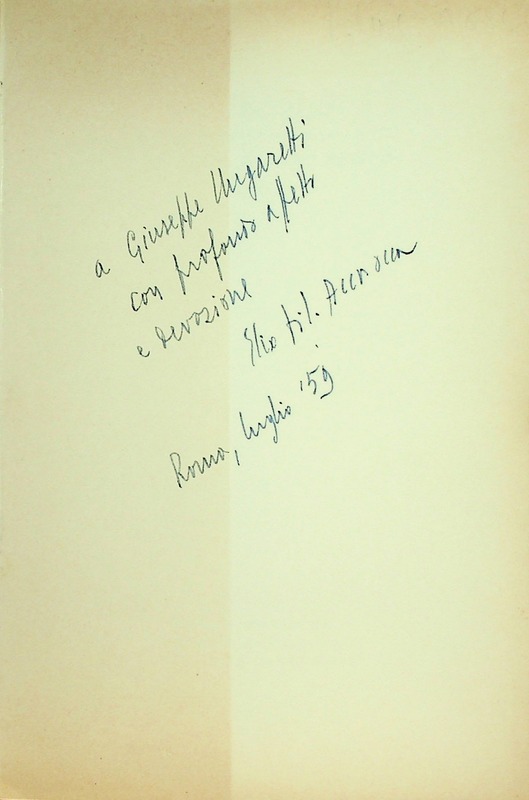 a Giuseppe Ungaretti
con profondo affetto
e devozione
Elio Fil. Accrocca
Roma, luglio '59